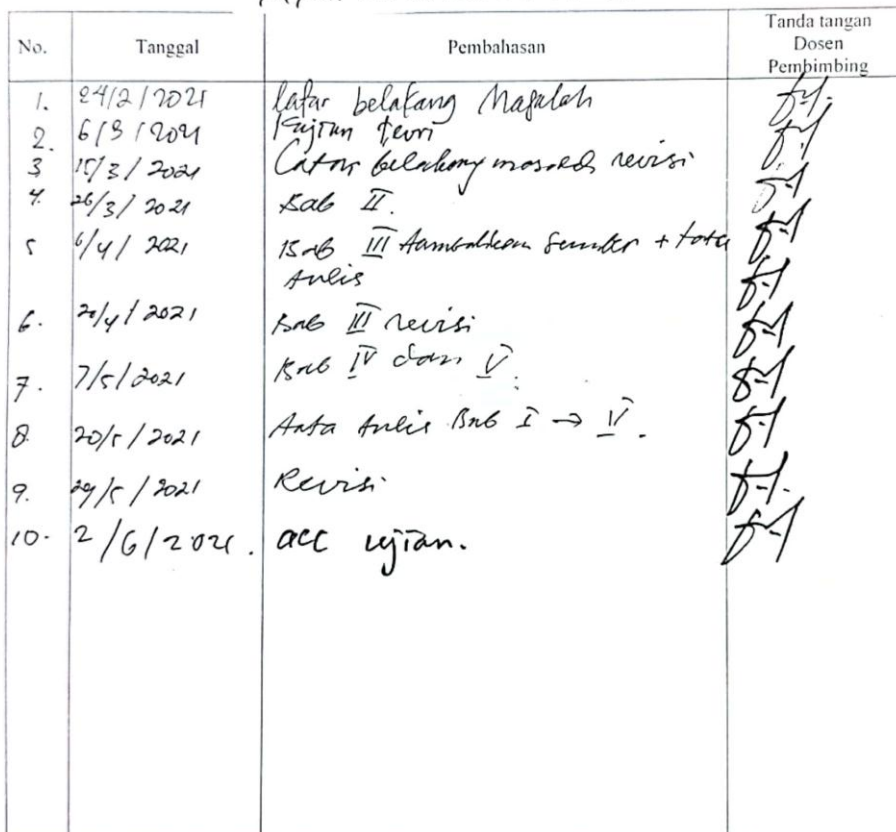 No. Tanggal Pembahasan Tanda tangan
Dosen
Pembimbing
1. 24/2/2021 latar belakang Masalah
2. 6/3/2021 Kajian teori
3 15/3/2021 Latar belakang masalah revisi
4. 26/3/2021 Bab II.
5 6/4/2021 Bab III tambahkan sumber + tata
tulis
6. 20/4/2021 Bab III revisi
7. 7/5/2021 Bab IV dan V.
8. 20/5/2021 Tata tulis Bab I → V.
9. 29/5/2021 Revisi
10. 2/6/2021. acc ujian.